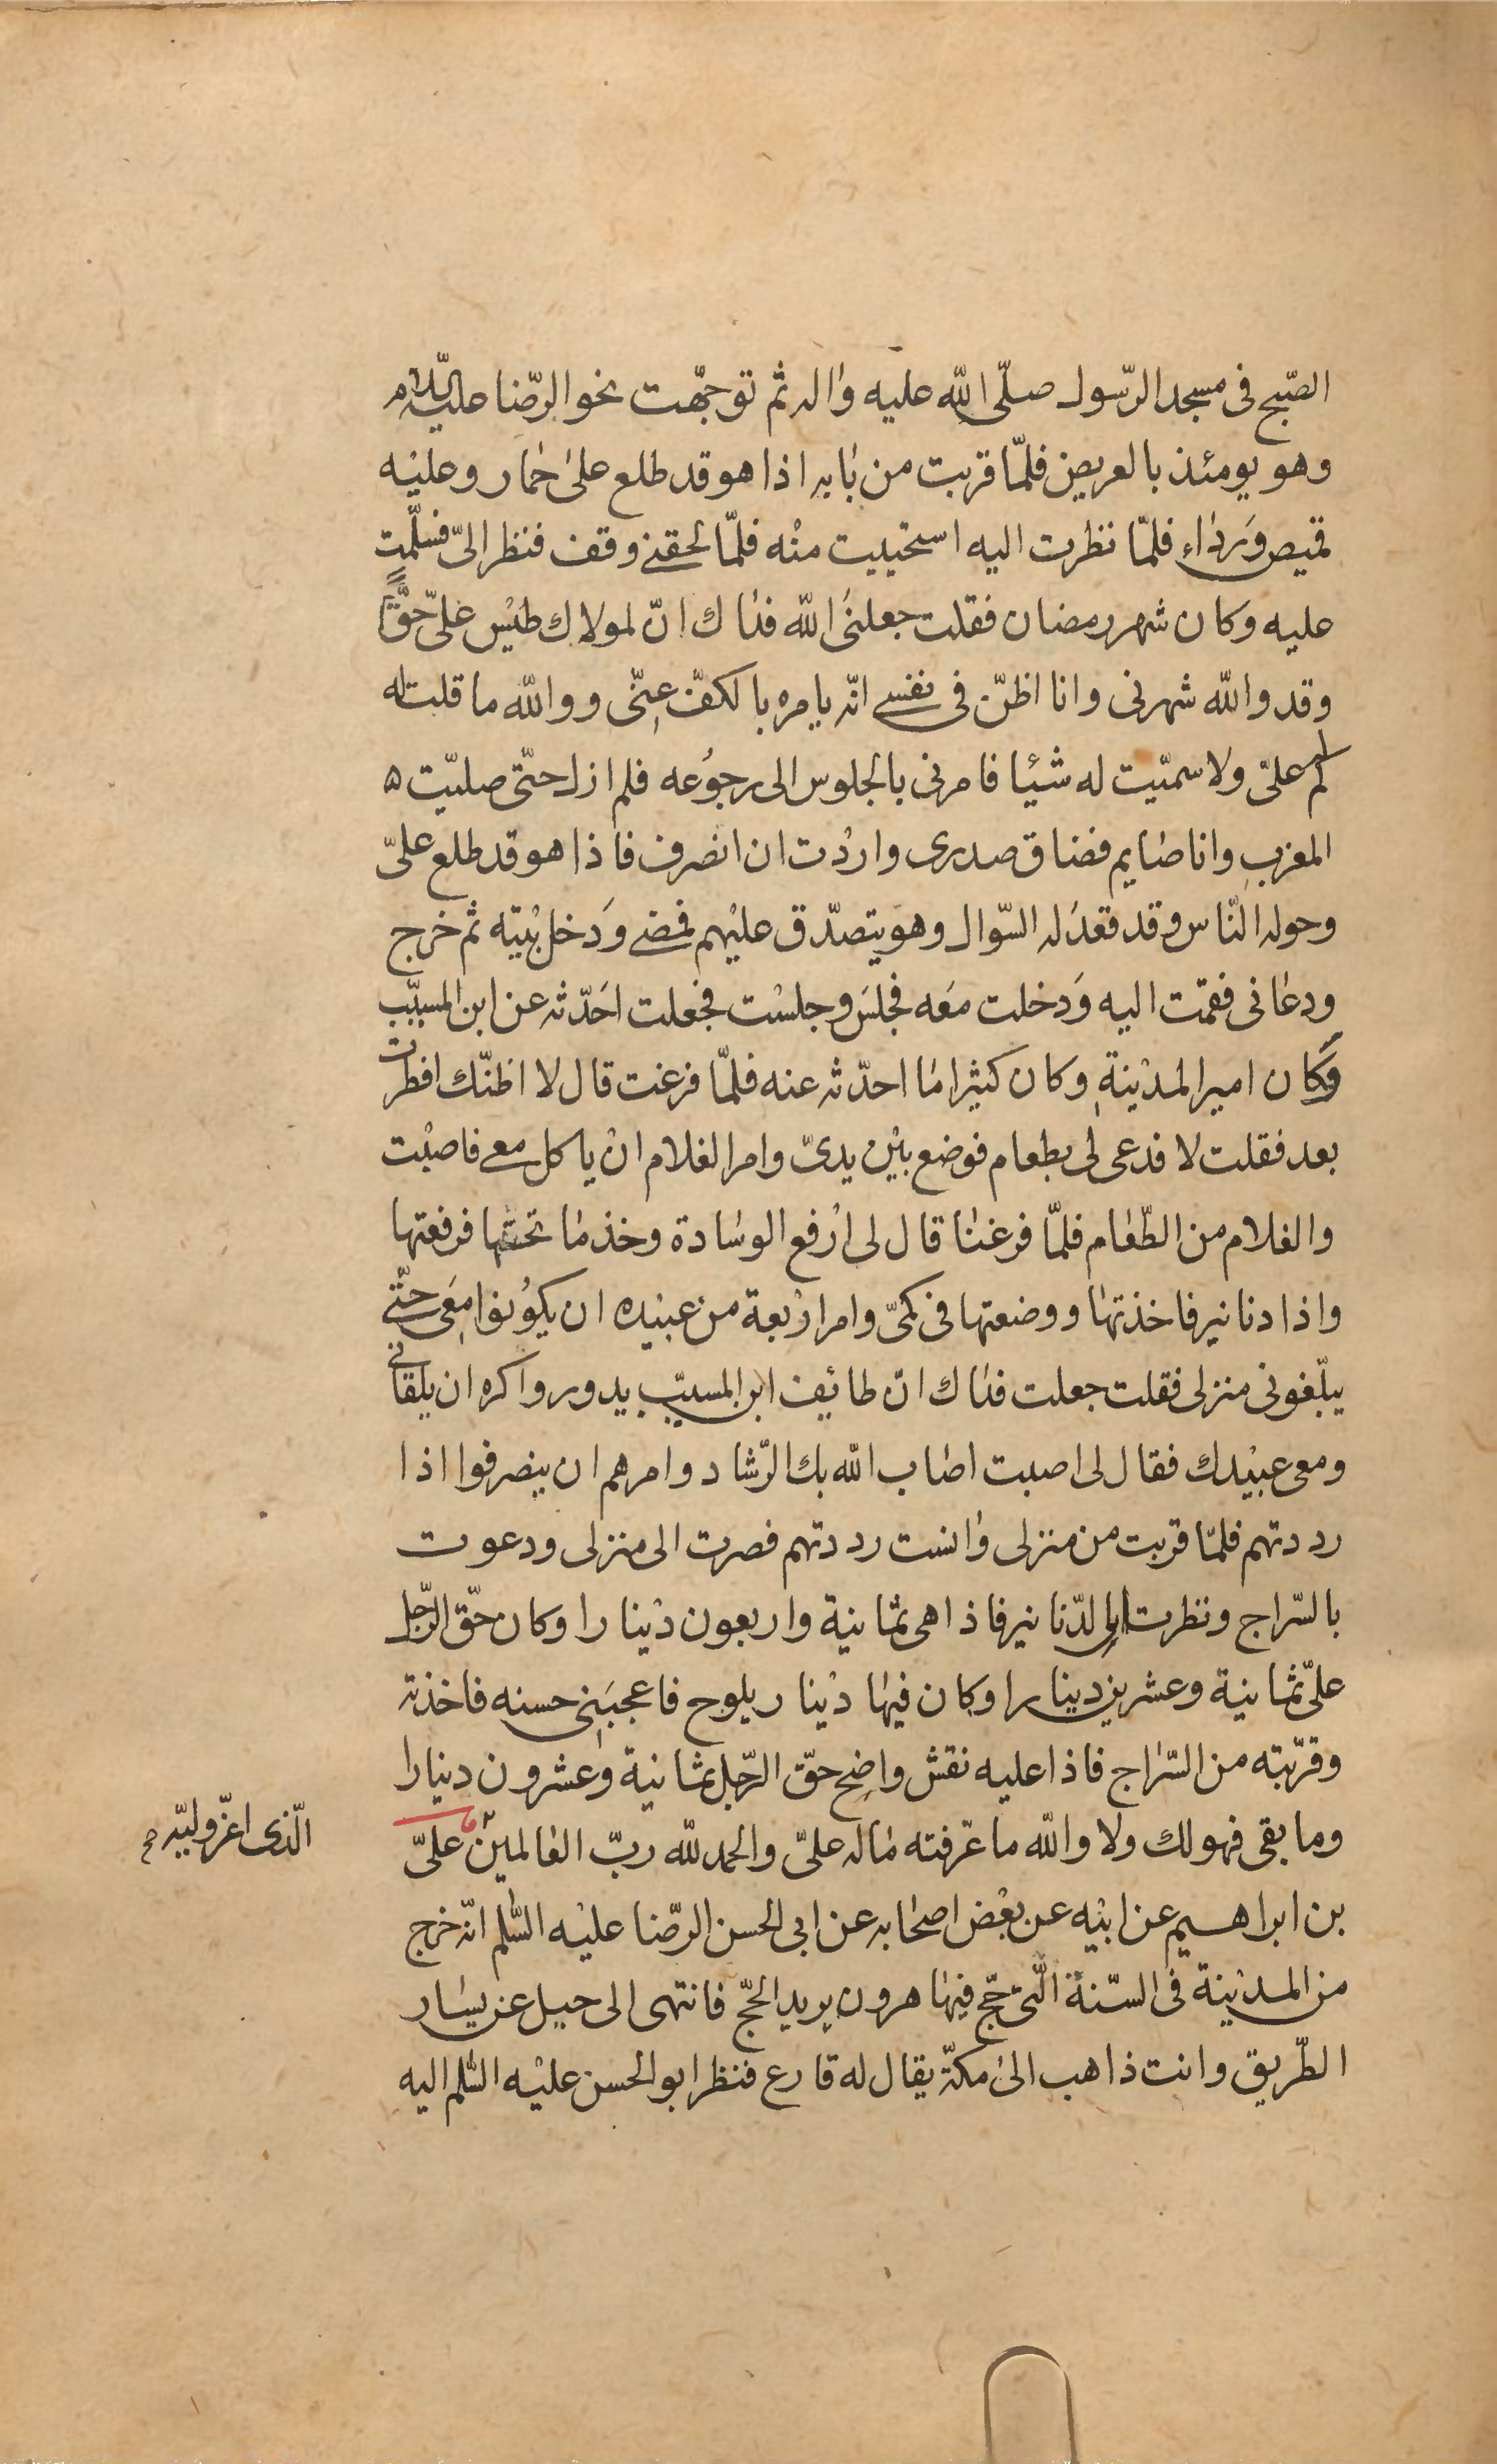 الصّبح فى مسجد الرّسول صلّى اللّه عليه واله ثم توجّهت نحو الرّضا عليه السّلام
وهو يومئذ بالعريض فلمّا قربت من بابه اذا هو قد طلع على حمار وعليه
قميص ورداء فلمّا نظرت اليه استحييت منه فلمّا لحقنى وقف فنظر الىّ فسلّمت
عليه وكان شهر رمضان فقلت جعلنى اللّه فداك انّ لمولاك طيس علىّ حقّاً
وقد واللّه شهرنى وانا اظنّ فى نفسى انّه يامره بالكفّ عنّى وواللّه ما قلت له
كم علىّ ولا سميّت له شيئا فامرنى بالجلوس الى رجوعه فلم ازل حتّى صليّت ه
المغرب وانا صايم فضاق صدرى واردت ان انصرف فاذا هو قد طلع علىّ
وحوله النّاس وقد قعد له السّوال وهو يتصدّق عليهم فمضى ودخل بيته ثم خرج
ودعانى فقمت اليه ودخلت معه فجلس وجلست فجعلت احدّثه عن ابن المسيّب
وكان امير المدينة وكان كثيرا ما احدّثه عنه فلمّا فرغت قال لا اظنّك افطرت
بعد فقلت لا فدعى لى بطعام فوضع بين يدىّ وامر الغلام ان ياكل معى فاصبت
والغلام من الطّعام فلمّا فرغنا قال لى ارفع الوسادة وخذ ما تحتها فرفعتها
واذا دنانير فاخذتها ووضعتها فى كمّى وامر اربعة من عبيده ان يكونوا معى حتّى
يبلّغونى منزلى فقلت جعلت فداك انّ طائف ابن المسيّب يدور واكره ان يلقانى
ومعى عبيدك فقال لى اصبت اصاب اللّه بك الرّشاد وامرهم ان ينصرفوا اذا
رددتهم فلمّا قربت من منزلى وانست رددتهم فصرت الى منزلى ودعوت
بالسّراج ونظرت الى الدّنانير فاذا هى ثمانية واربعون دينارا وكان حقّ الرّجل
علىّ ثمانية وعشرين دينارا وكان فيها دينار يلوح فاعجبنى حسنه فاخذته
وقرّبته من السّراج فاذا عليه نقش واضح حقّ الرّجل ثمانية وعشرون دينارا
وما بقى فهو لك ولا واللّه ما عرّفته ماله علىّ والحمد للّه ربّ العالمين علىّ
الّذى اعزّ وليّه
بن ابراهيم عن ابيه عن بعض اصحابه عن ابى الحسن الرّضا عليه السّلم انّه خرج
من المدينة فى السّنة الّتى حجّ فيها هرون يريد الحجّ فانتهى الى جبل عن يسار
الطّريق وانت ذاهب الى مكّة يقال له قارع فنظر ابو الحسن عليه السّلم اليه